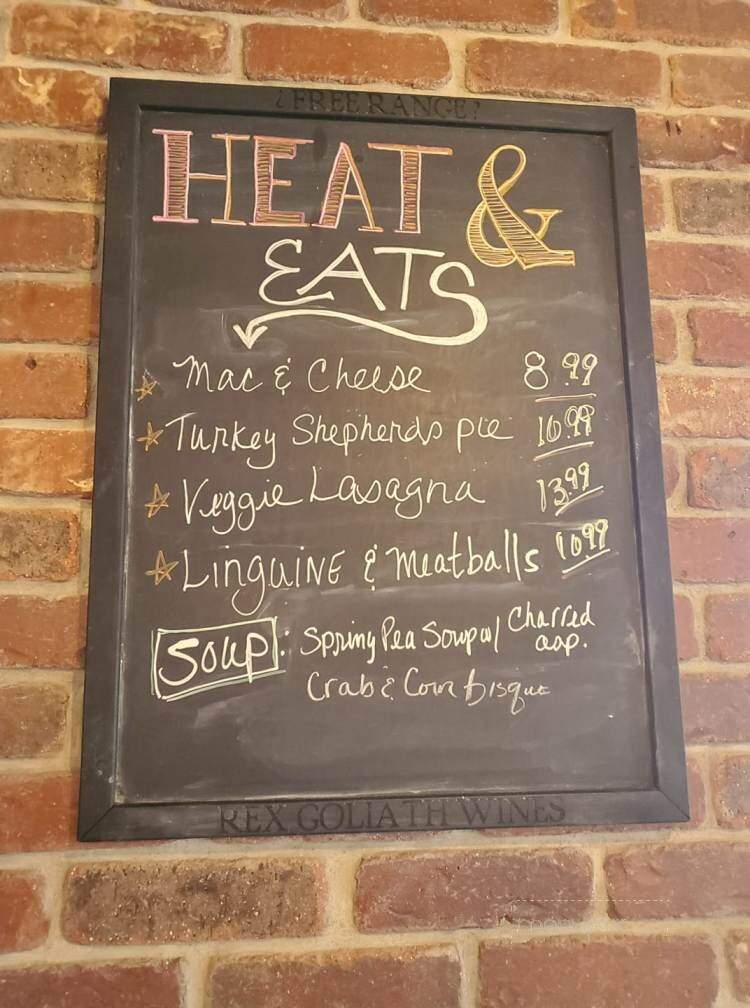 ¿FREE RANGE?
HEAT &
EATS
Mac & Cheese 8.99
Turkey Shepherds pie 10.99
Veggie Lasagna 13.99
LinguiNE & Meatballs 10.99
Soup: Spring Pea Soup w/ Charred asp.
Crab & Corn bisque
REX GOLIATH WINES